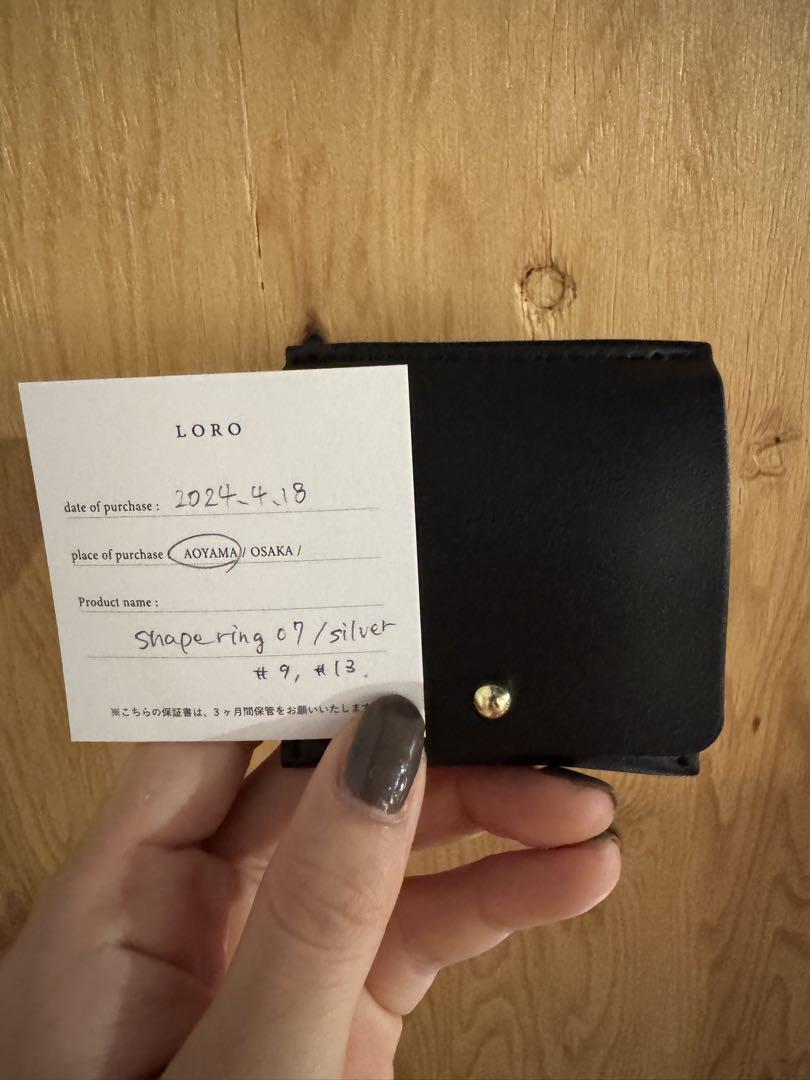 LORO
date of purchase : 2024.4.18
place of purchase : AOYAMA / OSAKA /
Product name :
Shape ring 07 / silver
#9, #13.
※こちらの保証書は、3ヶ月間保管をお願いいたします